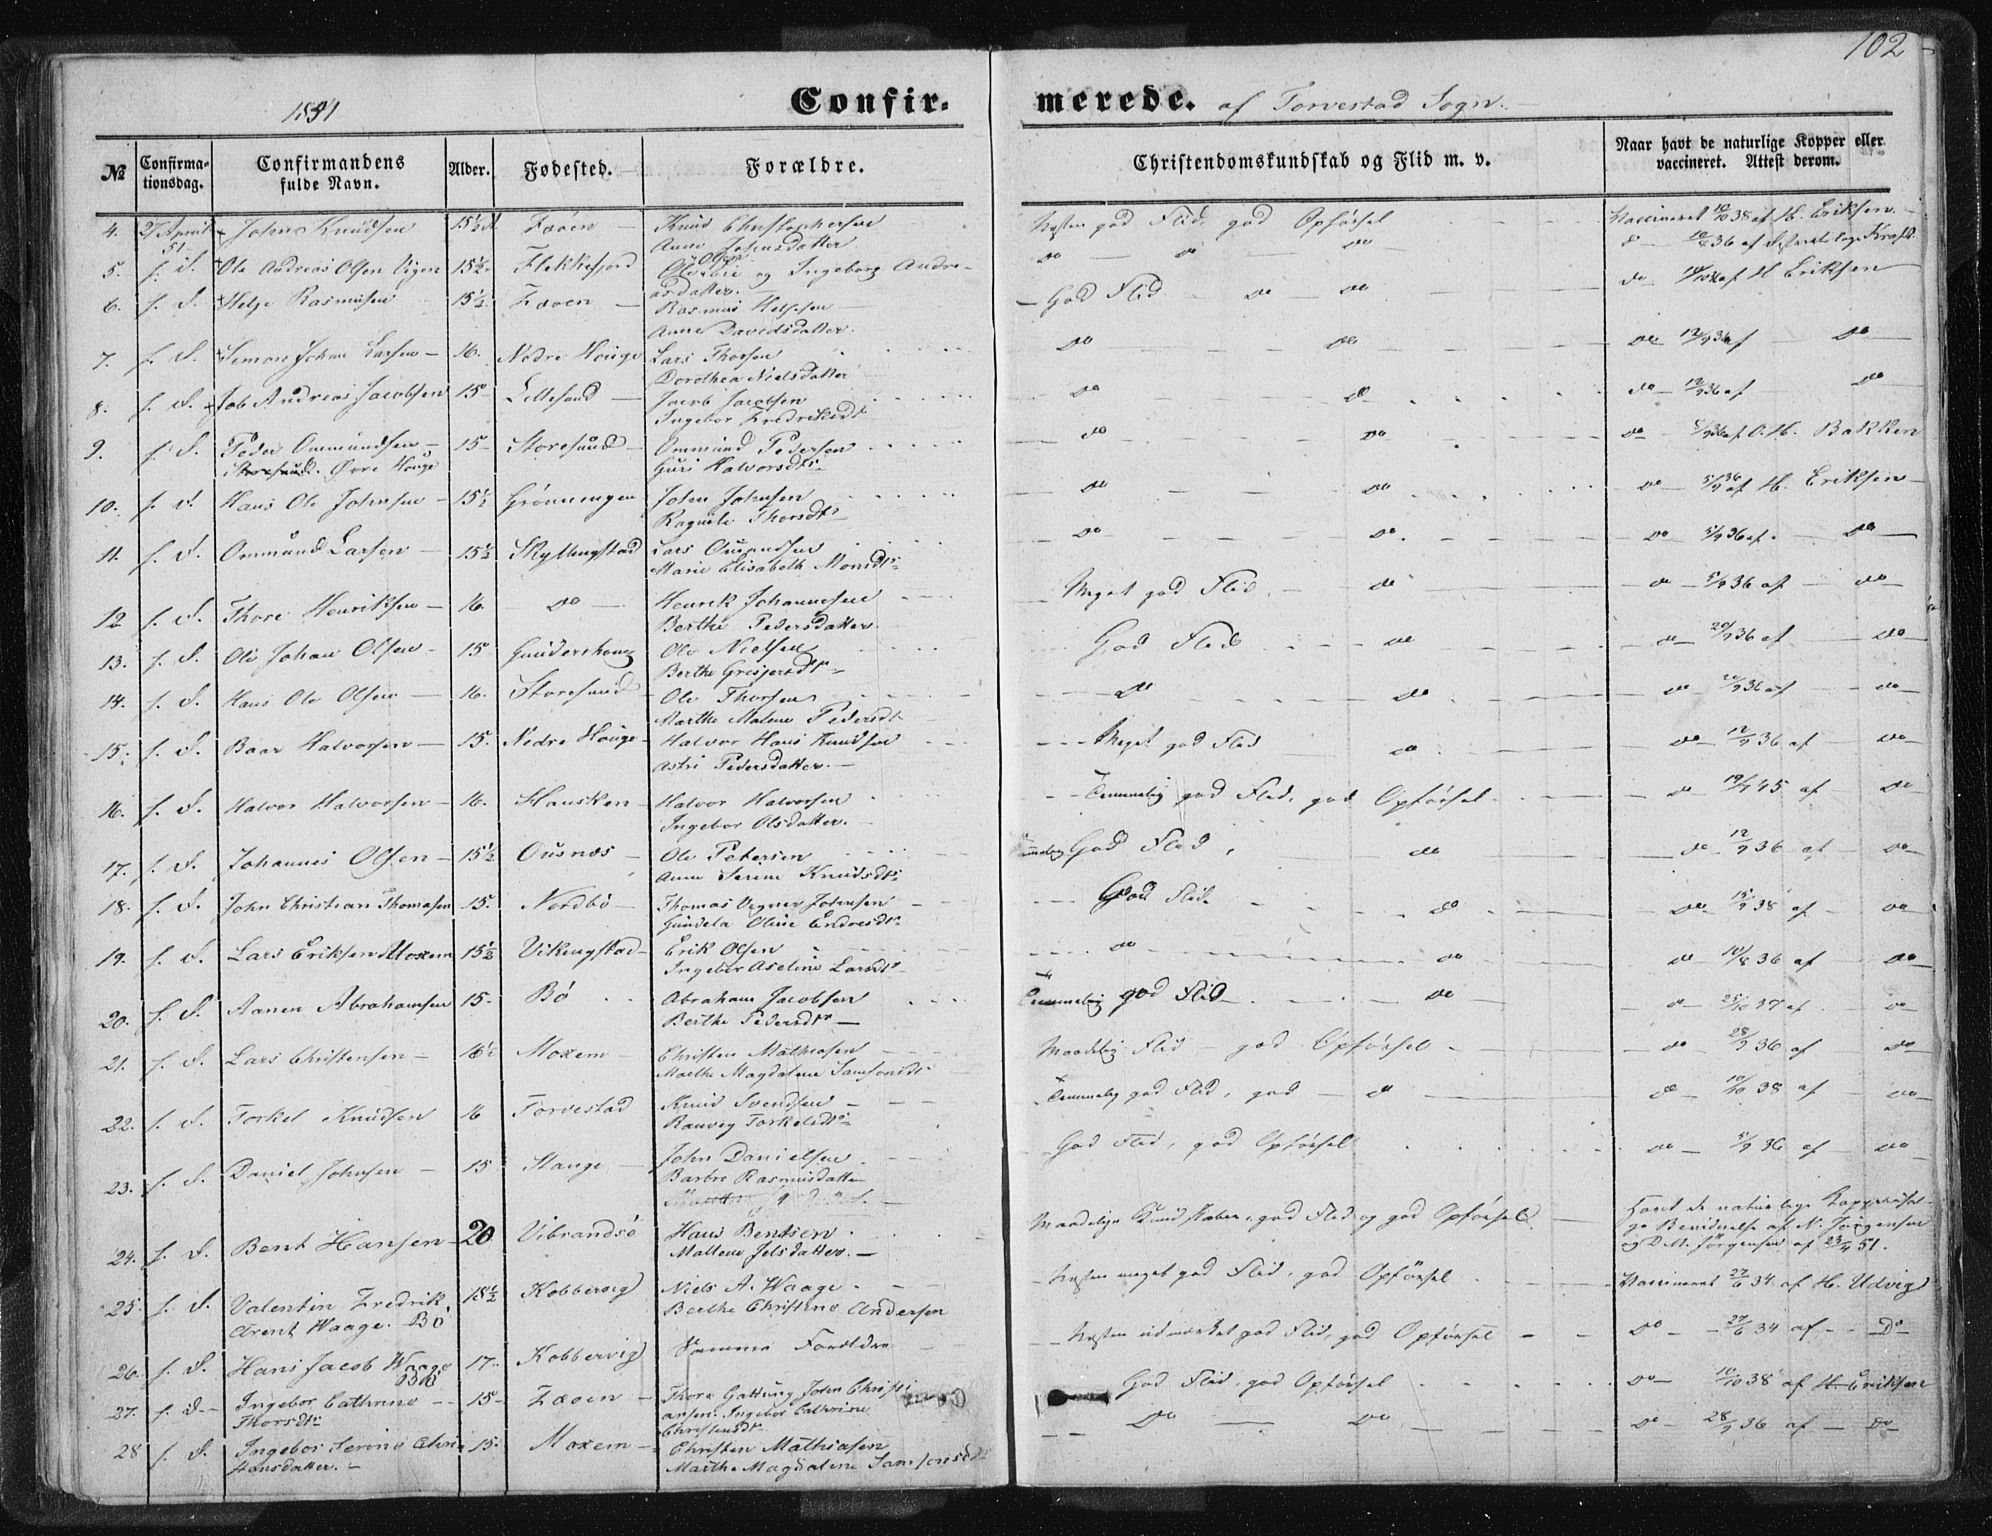 102
1851
Confir- merede. af Torvestad Sogn.
№ Confirma- tionsdag. Confirmandens fulde Navn. Alder. Fødested. Forældre. Christendomskundskab og Flid m. v. Naar havt de naturlige Kopper eller vaccineret. Attest derom.
4. 27 April 51 John Knudsen 15½ Fæøen Knud Christophersen Næsten god Flid, god Opførsel Vaccineret 38 af H. Eriksen
Anne Johnsdatter
5. s. D. Ole Andreas Olsen Vigen 15½ Flekkefjord Ole og Ingeborg Andre- do do do do 36 af Kraft
asdatter.
6. s. D. Helge Rasmusen 15½ Fæøen Rasmus Helgesen God Flid do do do af H Eriksen
Anne Davidsdatter
7. s. D. Simon Johan Larsen 16. Nedre Houge Lars Thorsen do do do 12/9 36 af do
Dorothea Nielsdatter
8. s. D. Job Andreas Jacobsen 15 Lillesund Jacob Jacobsen do do do 12/9 36 af do
Ingebor Fredriksdt
9. s. D. Peder Ommundsen 15 Storesund Ommund Pedersen do do do 36 af O. H. Bakken
Øvre Houge Guri Halvorsdt
10. s. D. Hans Ole Johnsen 15½ Grønningen John Johnsen do do do 5/9 36 af H. Eriksen
Thorsdt
11. s. D. Ommund Larsen 15½ Skyllingstad Lars do do do 5/9 36 af do
Marie Elisabeth Monsdt
12 s. D. Thore Henriksen 16. do Henrik Johannesen Meget god Flid do do 5/9 36 af do
Berthe Pedersdatter
13. s. D. Ole Johan Olsen 15 Gundershoug Ole Nielsen God Flid do do 20/9 36 af do
Berthe
14. s. D. Hans Ole Olsen 16. Storesund Ole Thorsen do do do 20/9 36 af do
Marthe Malene Pedersdt
15. s. D. Baar Halvorsen 15. Nedre Houge Halvor Hans Knudsen Meget god Flid do do 12/9 36 af do
Astri Pedersdatter.
16. s. D. Halvor Halvorsen 16. Hausken Halvor Halvorsen Temmelig god Flid, god Opførsel do 19/7 45 af do
Ingebor Olsdatter.
17. s. D. Johannes Olsen 15½ Ousnæs Ole Petersen God Flid, do do 12/9 36 af do
Anne Serine Knudsdt
18. s. D. John Christian Thomasen 15. Nordbø Thomas Johnsen God Flid do do 15/9 38 af do
Gundela Oline Endresdt
19. s. D. Lars Eriksen Moxem 15½ Vikingstad Erik Olsen do do do 10/8 36 af do
Ingebor Aseline Larsdt
20. s. D. Aanen Abrahamsen 15. Bø Abraham Jacobsen Temmelig god Flid do do 25/10 37 af do
Berthe Pedersdt
21. s. D. Lars Christensen 16½ Moxem Christen Mathiasen Maadelig Flid god Opførsel do 28/9 36 af do
Marthe Magdalene Samsonsdt
22. s. D. Torkel Knudsen 16 Torvestad Knud Svendsen Temmelig god Flid, god do do 10/10 38 af do
Ranveg Torkelsdt
23. s. D. Daniel Johnsen 15 Stange John Danielsen God Flid, god Opførsel do 5/9 36 af do
Barbre Rasmusdatter
24. s. D. Bent Hansen 20 Vibrandsø Hans Bentsen Maadelige Kundskaber, god Flid og god Opførsel Havt de naturlige Kopper
Maltene Jelsdatter. Bevidnelse af N. Jørgensen
og D M. Jørgensen af 23/4 51.
25. s. D. Valentin Fredrik 18½ Kobbervig Niels A. Waage Næsten meget god Flid, god Opførsel Vaccineret 27/6 34 af H. Udvig
Arent Waage. Bø Berthe Christine Andersen
26. s. D. Hans Jacob Waage 17. Kobbervig Samme Forældre Næsten udmærket god Flid, god Opførsel do 27/6 34 af Do
Bø
27. s. D. Ingebor Cathrine 15 Fæøen Thore Gattung John Christi God Flid, god Opførsel do 10/10 38 af H. Eriksen
Thorsdt ansen. Ingebor Cathrine
Christensdt
28 s. D. Ingebor Serine Chri 15. Moxem Christen Mathiasen Do Do Do 28/9 36 af Do
stensdatter. Marthe Magdalene Samsonsdt